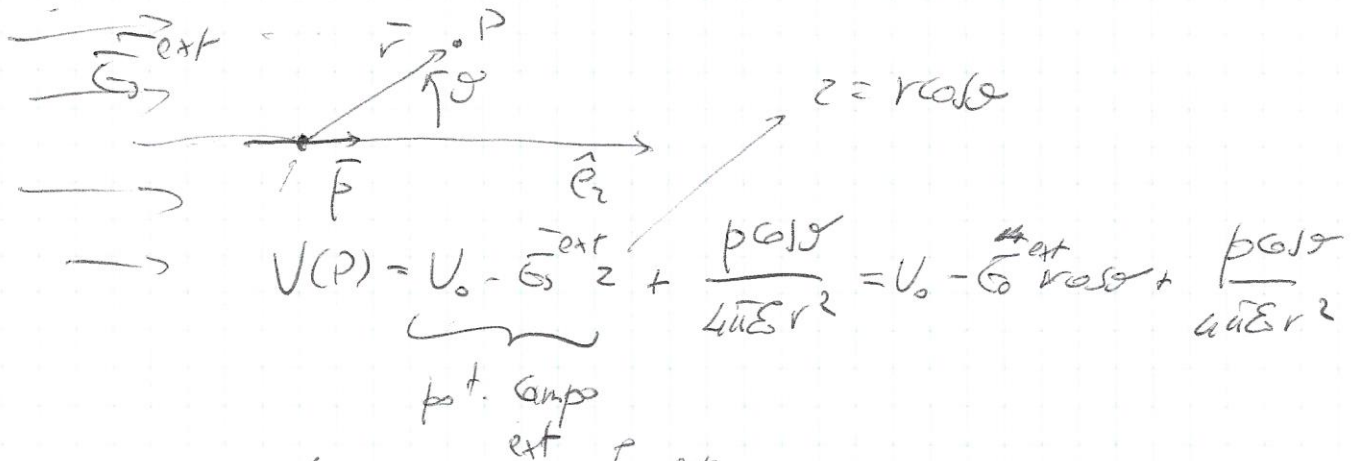 E₀ ext r̄ P
ϑ z = r cosϑ
p̄ ê_z
V(P) = V₀ - E₀ ext z + p cosϑ / 4πε r² = V₀ - E₀ ext r cosϑ + p cosϑ / 4πε r²
pot. campo
ext